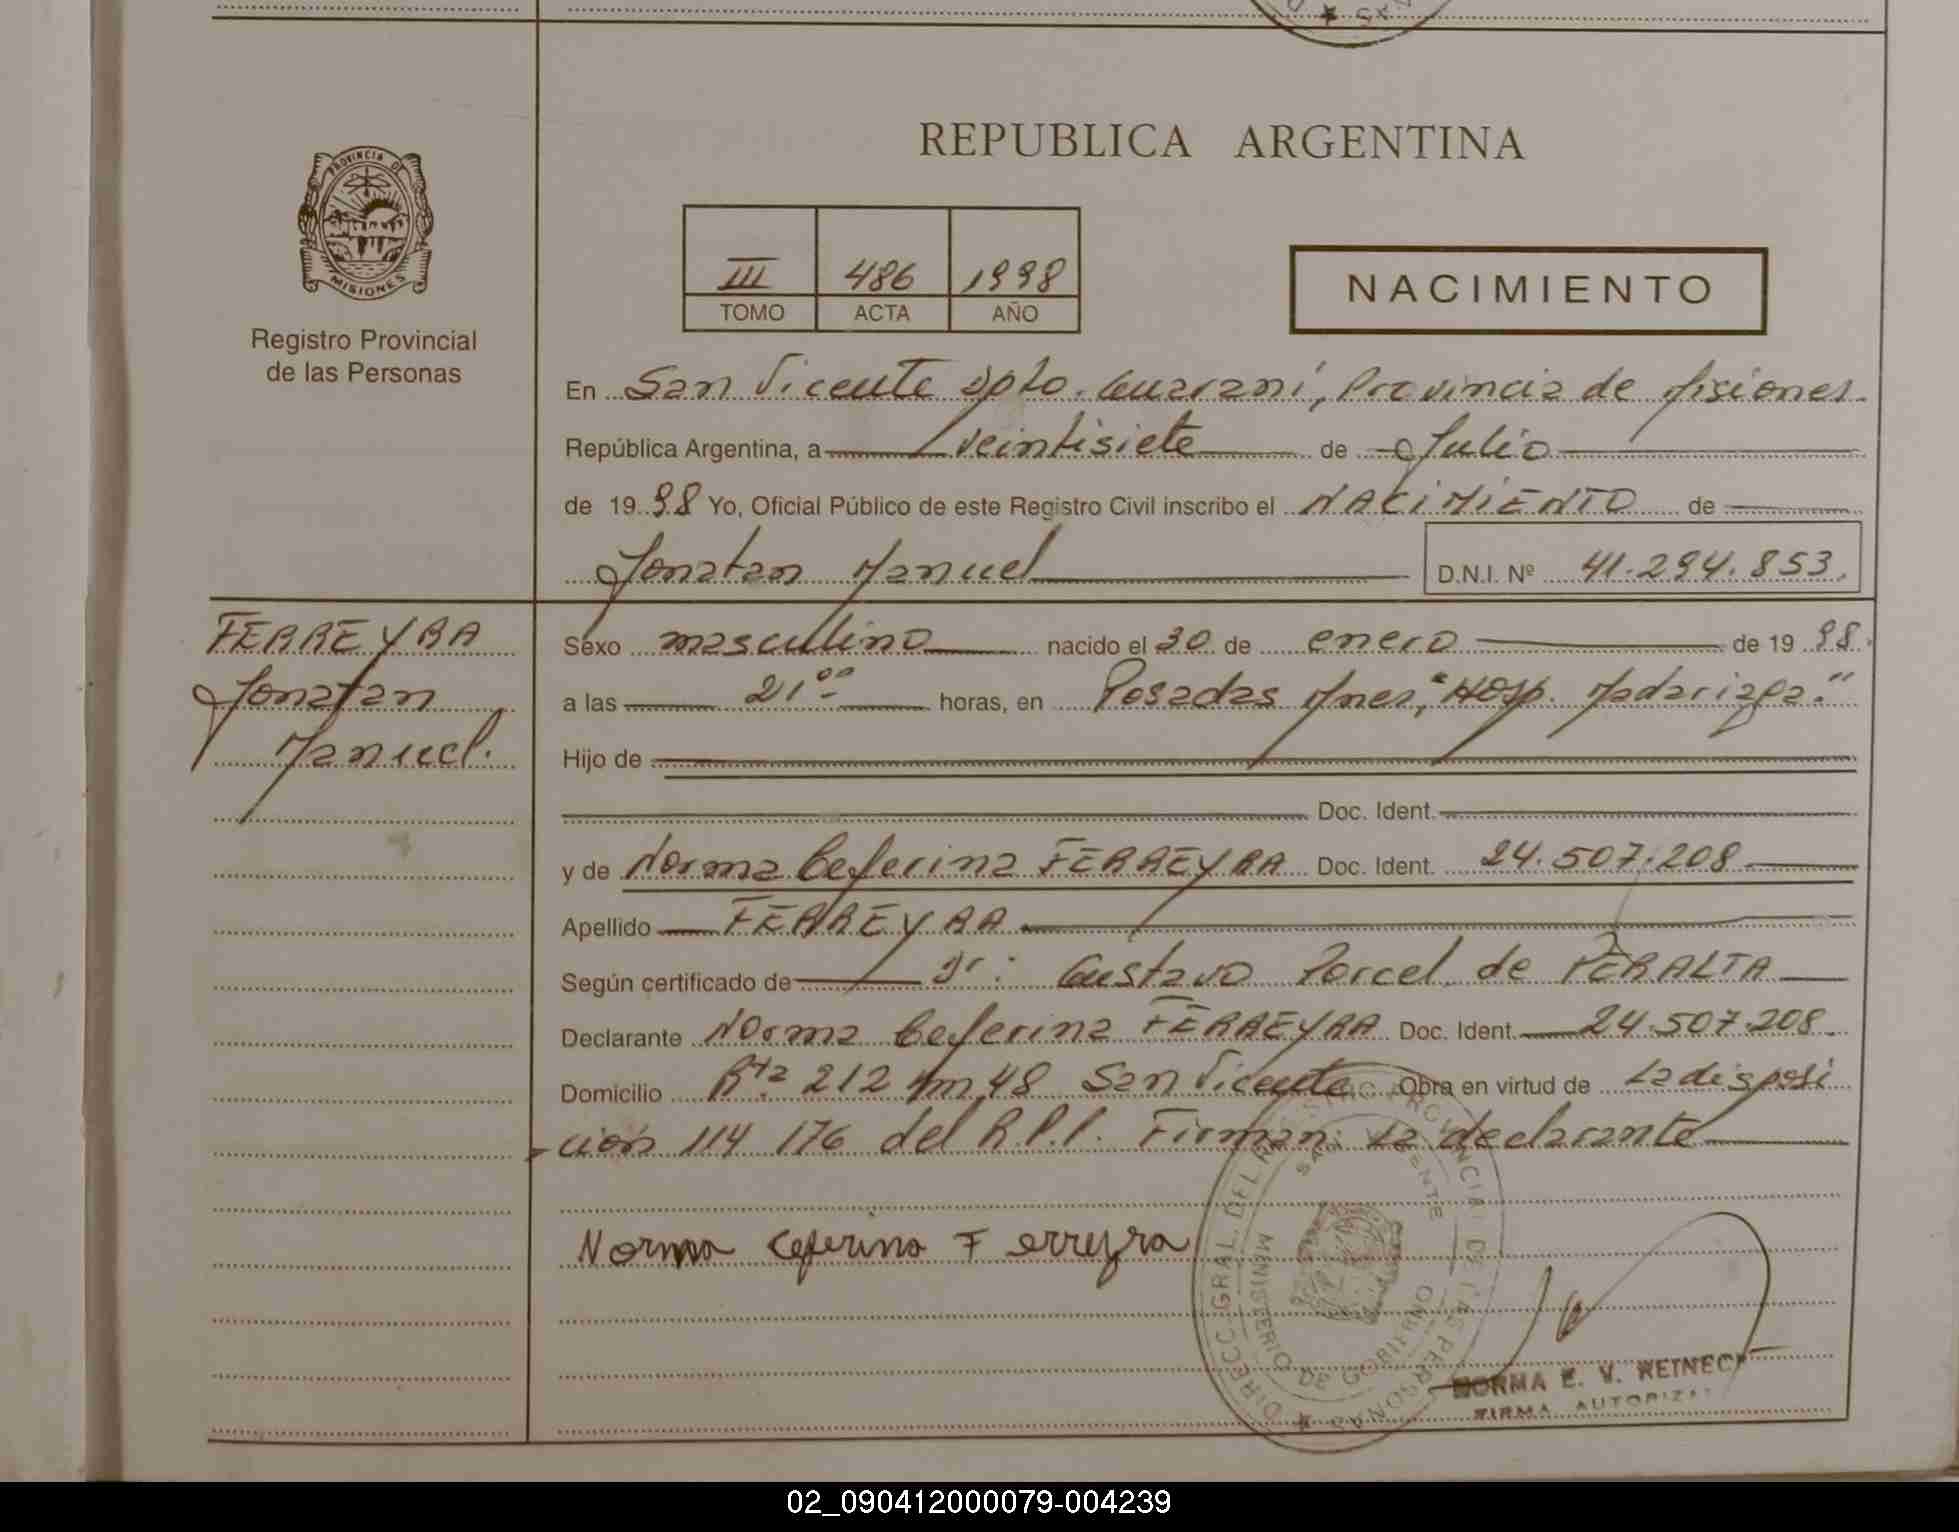 REPUBLICA ARGENTINA
PROVINCIA DE
MISIONES
Registro Provincial
de las Personas
III 486 1998
TOMO ACTA AÑO
NACIMIENTO
En San Vicente Dpto. Guaraní, Provincia de Misiones.
República Argentina, a veintisiete de Julio
de 1998 Yo, Oficial Público de este Registro Civil inscribo el NACIMIENTO de
Jonatan Manuel
D.N.I. Nº 41.294.853.
FERREYRA
Jonatan
Manuel.
Sexo masculino nacido el 30 de enero de 1998.
a las 21 00 horas, en Posadas Mnes, "Hosp. Madariaga."
Hijo de
Doc. Ident.
y de Norma Ceferina FERREYRA Doc. Ident. 24.507.208
Apellido FERREYRA
Según certificado de Dr: Gustavo Porcel de PERALTA
Declarante Norma Ceferina FERREYRA Doc. Ident. 24.507.208.
Domicilio Rta. 212 Km 48 San Vicente Obra en virtud de La disposi
-cion 114 176 del R.P.P. Firman: La declarante
Norma Ceferina Ferreyra
DIRECC. GRAL. DEL REGISTRO PROVINCIAL DE LAS PERSONAS
SAN VICENTE
MINISTERIO DE GOBIERNO
NORMA E. V. REINECK
FIRMA AUTORIZA
02_090412000079-004239